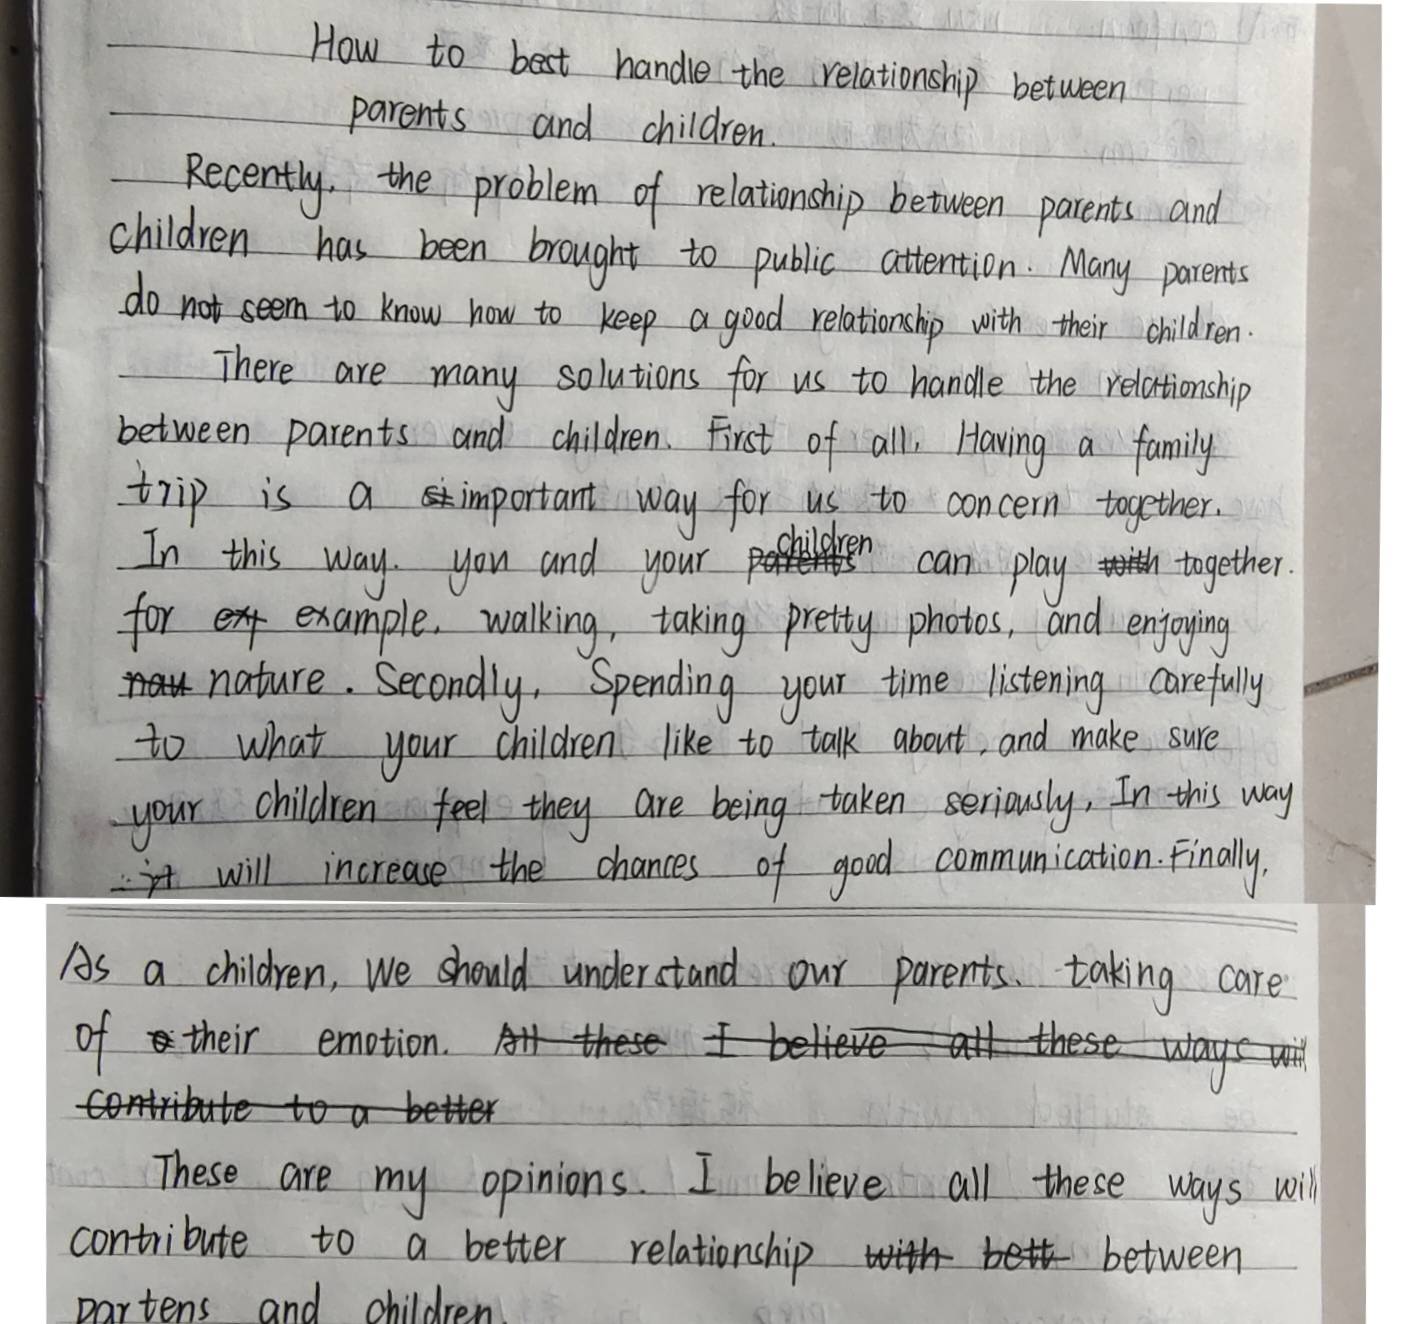 How to best handle the relationship between
parents and children.
Recently, the problem of relationship between parents and
children has been brought to public attention. Many parents
do not seem to know how to keep a good relationship with their children.
There are many solutions for us to handle the relationship
between parents and children. First of all, Having a family
trip is a important way for us to concern together.
In this way. you and your children can play together.
for example, walking, taking pretty photos, and enjoying
nature. Secondly, Spending your time listening carefully
to what your children like to talk about, and make sure
your children feel they are being taken seriously, In this way
it will increase the chances of good communication. Finally,
As a children, We should understand our parents. taking care
of their emotion. All these I believe all these ways will
contribute to a better
These are my opinions. I believe all these ways will
contribute to a better relationship with bett between
partens and children.